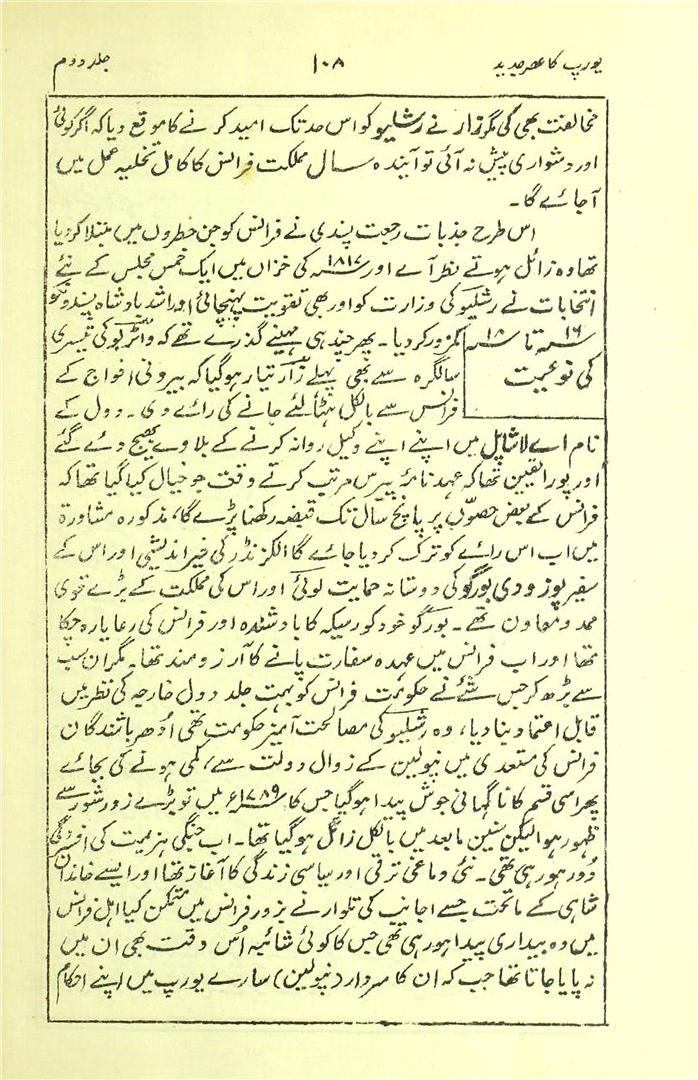 یورپ کا عصر جدید ۱۰۸ جلد دوم
مخالفت بھی کی مگر زار نے رشلیو کو اس حد تک امید کرنے کا موقع دیا کہ اگر کوئی
اور دشواری پیش نہ آئی تو آیندہ سال مملکت فرانس کا کامل تخلیہ عمل میں
آجائے گا۔
اس طرح جذبات رجعت پسندی نے فرانس کو جن خطروں میں مبتلا کر دیا
تھا وہ زائل ہوتے نظر آے اور ۱۸۱۷ء کی خزاں میں ایک خمس مجلس کے نئے
انتخابات نے رشلیو کی وزارت کو اور بھی تقویت پہنچائی اور اشد بادشاہ پسندوں کو
۱۶ء تا ۱۸ء
کی نوعیت
کمزور کر دیا۔ پھر چند ہی مہینے گذرے تھے کہ واٹرلو کی تیسری
سالگرہ سے بھی پہلے زار تیار ہوگیا کہ بیرونی افواج کے
فرانس سے بالکل ہٹا لئے جانے کی رائے دی۔ دول کے
نام اے لا شاپل میں اپنے اپنے وکیل روانہ کرنے کے بلاوے بھیج دئے گئے
اور پورا یقین تھا کہ عہد نامۂ پیرس مرتب کرتے وقت جو خیال کیا گیا تھا کہ
فرانس کے بعض حصوں پر پانچ سال تک قبضہ رکھنا پڑے گا، مذکورہ مشاورۃ
میں اب اس رائے کو ترک کر دیا جائے گا الکزنڈر کی خیر اندیشی اور اس کے
سفیر پوزو دی بورگو کی دوستانہ حمایت لوئی اور اس کی مملکت کے بڑے قوی
ممد و معاون تھے۔ بورگو خود کورسیکہ کا باشندہ اور فرانس کی رعایا رہ چکا
تھا اور اب فرانس میں عہدہ سفارت پانے کا آرزومند تھا۔ مگر ان سب
سے بڑھ کر جس شے نے حکومت فرانس کو بہت جلد دول خارجہ کی نظر میں
قابل اعتماد بنا دیا، وہ رشلیو کی مصالحت آمیز حکومت تھی اُدھر باشندگان
فرانس کی مستعدی میں نپولین کے زوال دولت سے، کمی ہونے کی بجائے
پھر اسی قسم کا ناگہانی جوش پیدا ہوگیا جس کا ۱۷۸۹ء میں تو بڑے زور شور سے
ظہور ہوا لیکن سنین مابعد میں بالکل زائل ہوگیا تھا۔ اب جنگی ہزیمت کی افسردگی
دُور ہو رہی تھی۔ نئی دماغی ترقی اور سیاسی زندگی کا آغاز تھا اور ایسے خاندان
شاہی کے ماتحت جسے اجانب کی تلوار نے بزور فرانس میں متمکن کیا اہل فرانس
میں وہ بیداری پیدا ہو رہی تھی جس کا کوئی شائبہ اُس وقت بھی ان میں
نہ پایا جاتا تھا جب کہ ان کا سردار (نپولین) سارے یورپ میں اپنے احکام